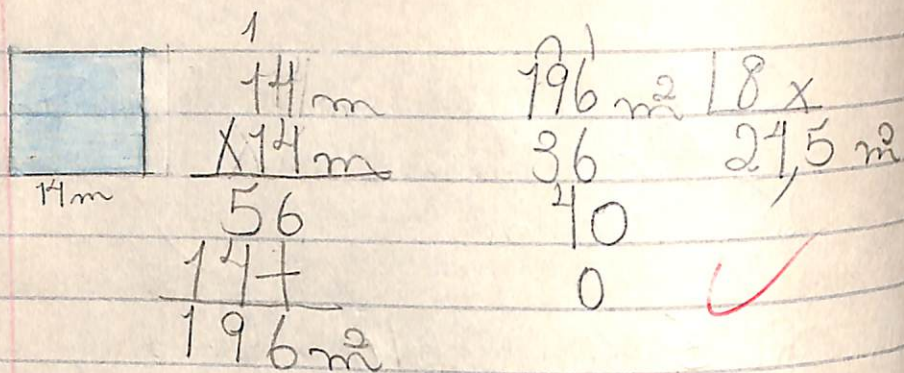 14m
1
14 m
X14 m
56
14+
196 m²
196 m² 8 x
36 24,5 m²
40
0